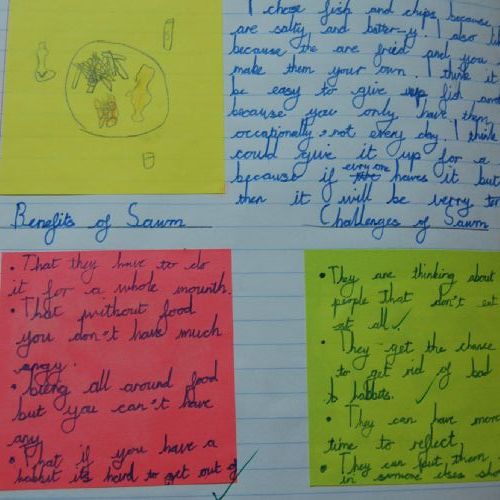 I chose fish and chips because
are salty and batter-y. I also li
because the are fried and you
make them your own. I think it
be easy to give up fish an
because you only have them
occasionally not every day. I think
could give it up for a
because if every one haves it but
then it will be verry to
Benefits of Sawm
Challenges of Sawm
• That they have to do
it for a whole mounth.
• That without food
you don't have much
engy.
• being all around food
but you can't have
any
• That if you have a
habbit its hard to get out of
• They are thinking about
people that don't eat
at all.
• They get the chance
to get rid of bad
habbits.
• They can have more
time to reflect
• They can put them
in somone elses sho